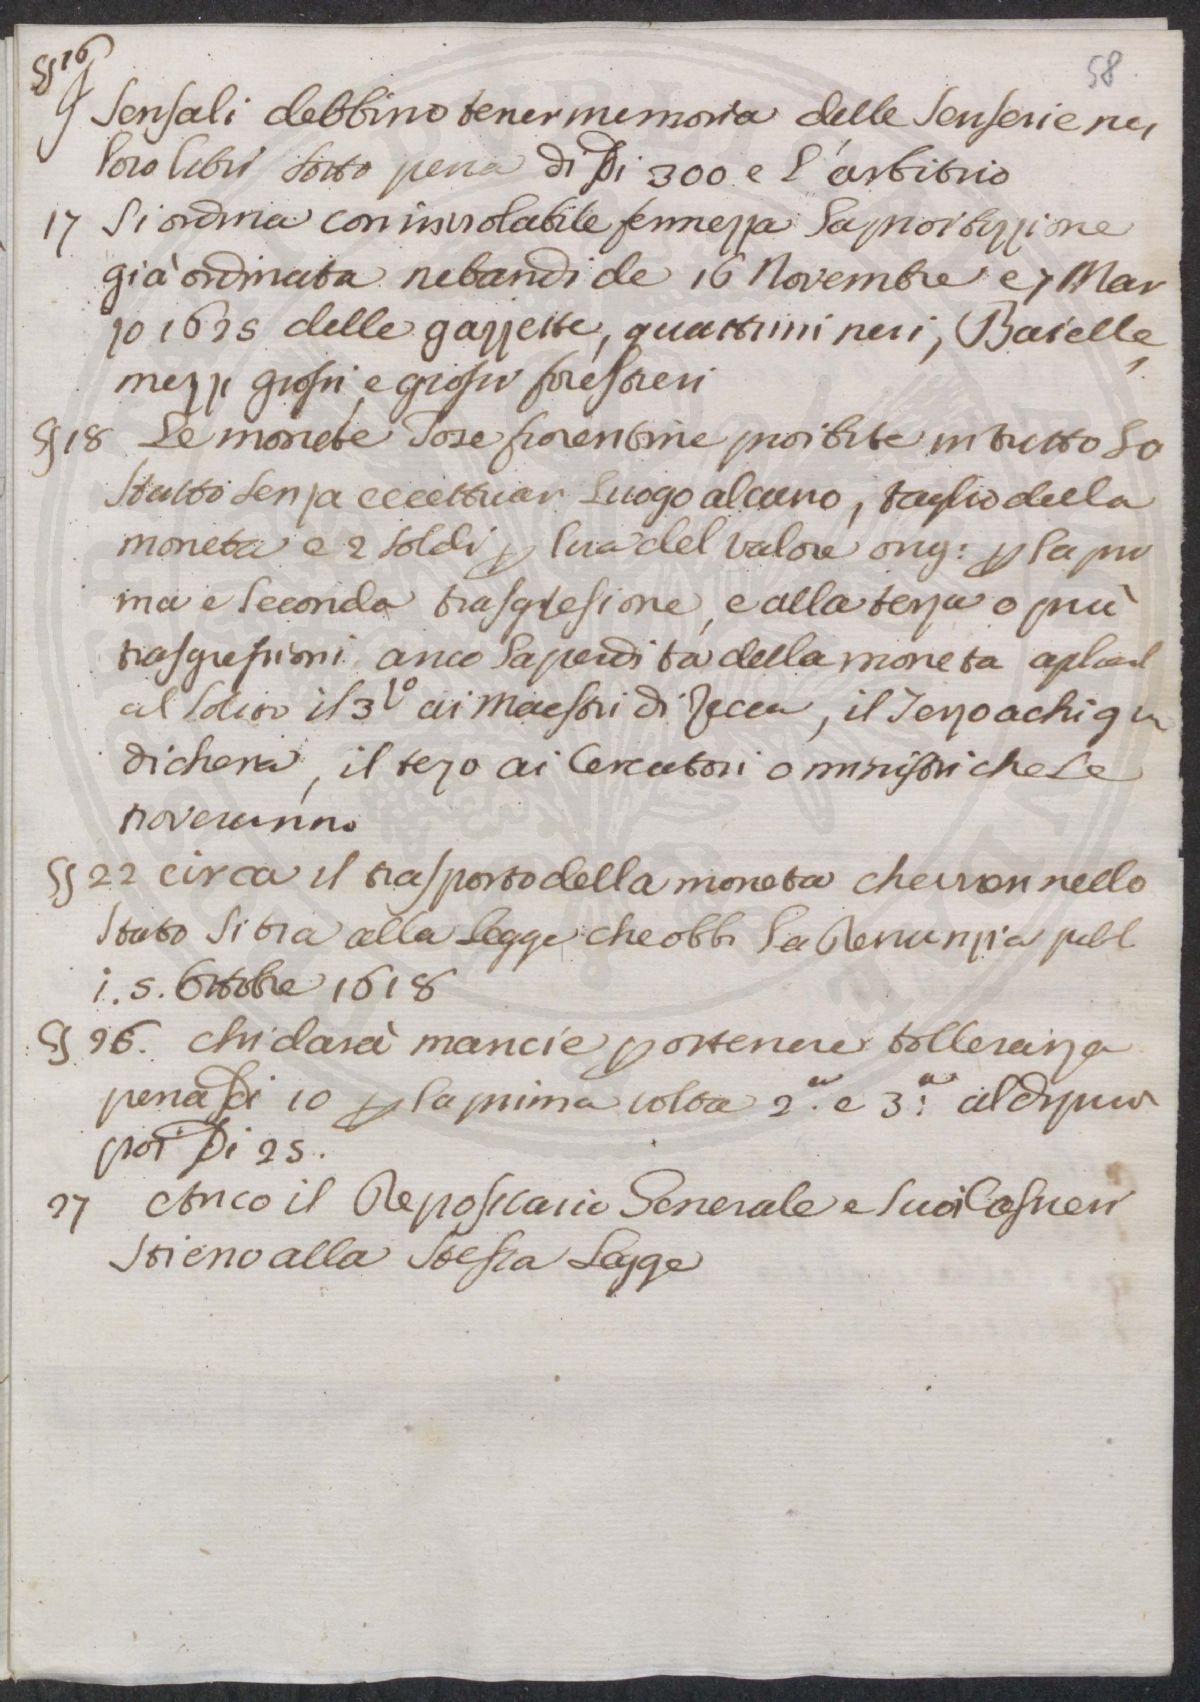 § 16 58
J Sensali debbino tener memoria delle Senserie nei
loro libri sotto pena di Di 300 e l'arbitrio
17 Si ordina con inviolabile fermezza la proibizzione
già ordinata ne bandi de 16 Novembre e 7 Mar
zo 1625 delle gazzette, quattrini neri, Baielle,
mezzi grossi, e grossi forestieri
§ 18 Le monete Tose fiorentine proibite in tutto lo
Stato senza eccettuar luogo alcuno, taglio della
moneta e 2 soldi p lira del valore orig: p la pri
ma e seconda trasgresione, e alla terza o più
trasgressioni anco la perdita della moneta
al solito il 3º ai Maestri di Zecca, il Terzo a chi giu
dicherà, il terzo ai Cercatori o ministri che le
troveranno
§ 22 circa il trasporto della moneta che non nello
Stato si tira alla legge che obbi la Renunzia publ
i. 5. Ottobre 1618
§ 26. chi darà mancie p ottenere tolleranza
pena Di 10 p la prima volta 2.a e 3.a al di piu
poi Di 25.
27 Anco il Depositario Generale e suoi Cassieri
Stieno alla Stessa Legge